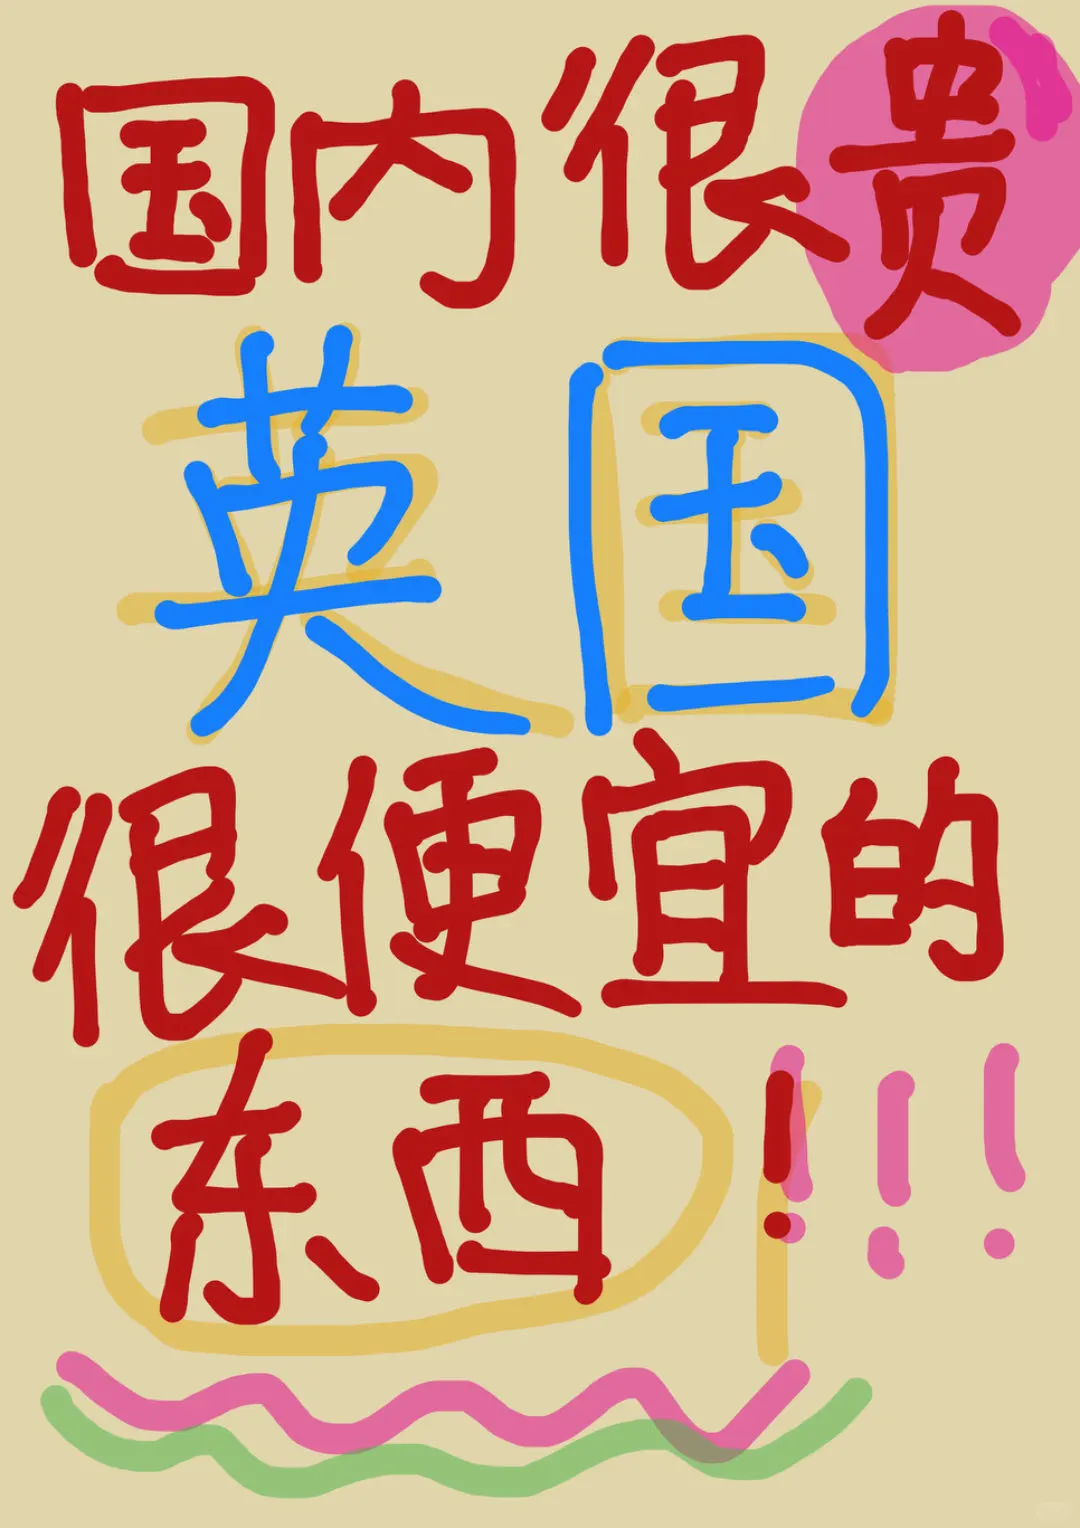 国内很贵
英国
很便宜的
东西!!!